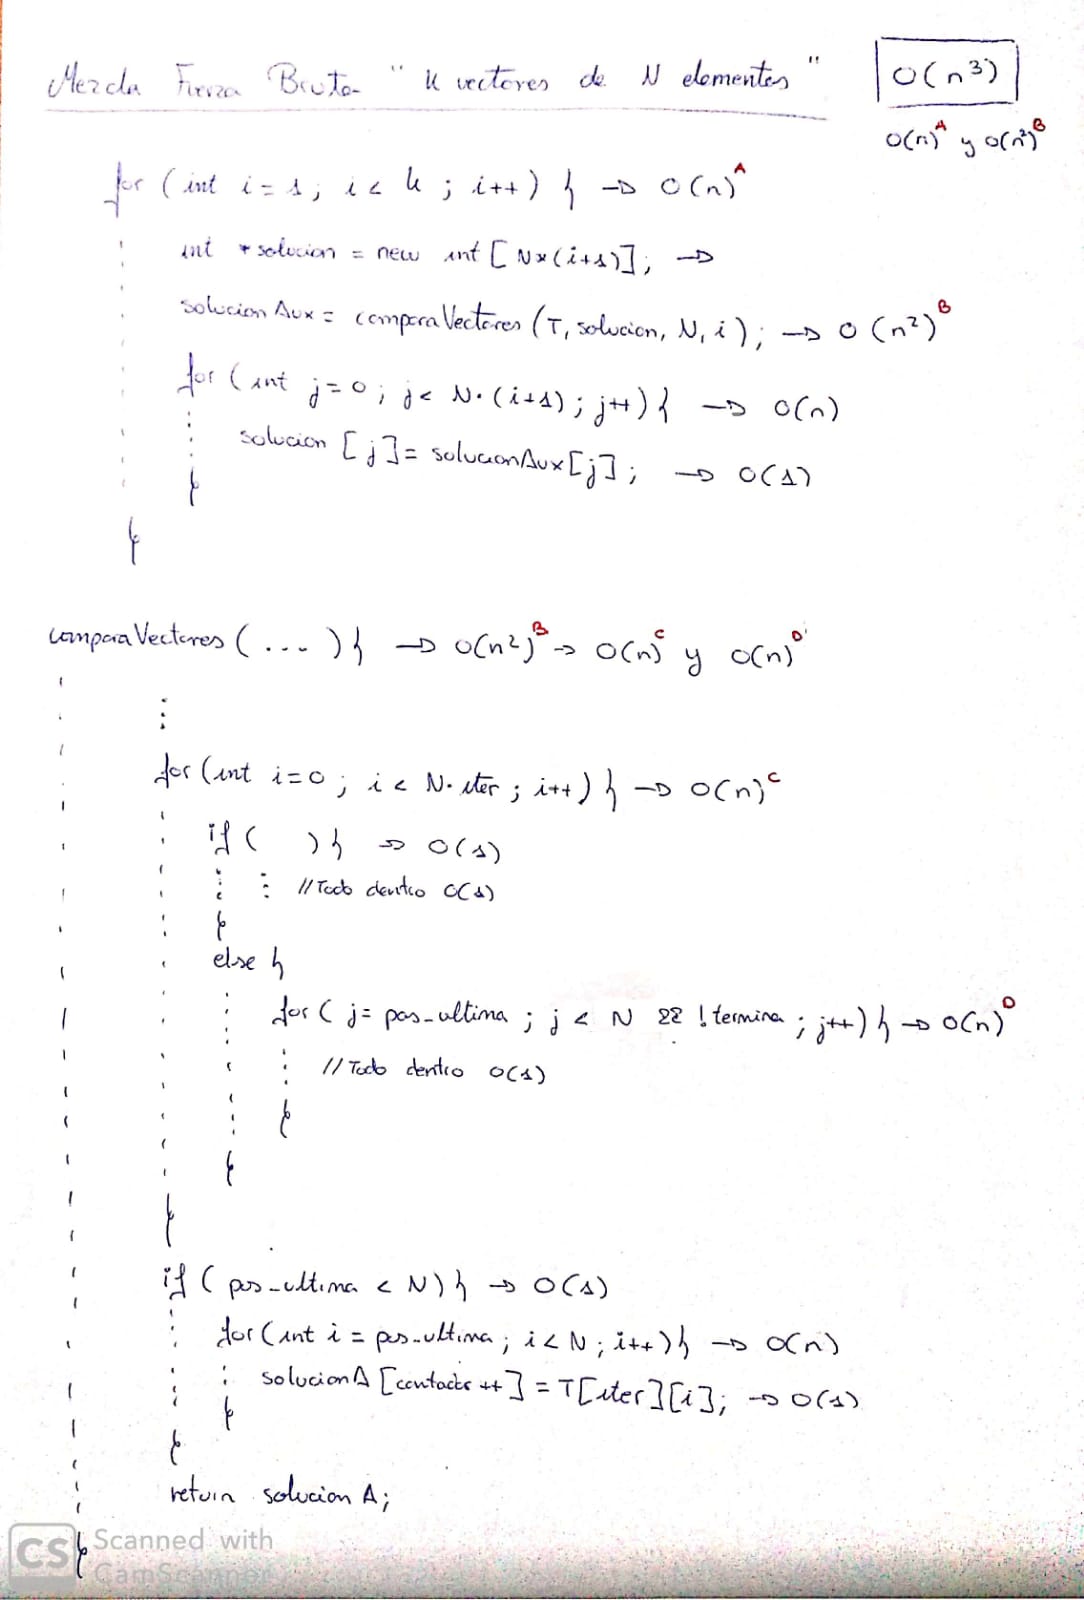 Mezcla Fuerza Bruta " k vectores de N elementos "
O(n³)
O(n)ᴬ y O(n²)ᴮ
for ( int i = 1; i < k ; i++ ) { → O(n)ᴬ
int * solucion = new int [ N*(i+1)]; →
solucionAux = comparaVectores (T, solucion, N, i ); → O (n²)ᴮ
for (int j=0; j< N·(i+1); j++) { → O(n)
solucion [j]= solucionAux[j]; → O(1)
}
}
comparaVectores ( ... ) { → O(n²)ᴮ → O(n)ᶜ y O(n)ᴰ
⋮
for (int i=0; i < N·iter; i++) { → O(n)ᶜ
if ( ) { → O(1)
⋮ // Todo dentro O(1)
}
else {
for ( j= pos_ultima ; j < N && !termina ; j++) { → O(n)ᴰ
⋮ // Todo dentro O(1)
}
}
}
if ( pos_ultima < N) { → O(1)
for (int i = pos_ultima; i < N; i++) { → O(n)
solucionA [contador ++] = T[iter][i]; → O(1)
}
}
return solucion A;
}
CS Scanned with
CamScanner